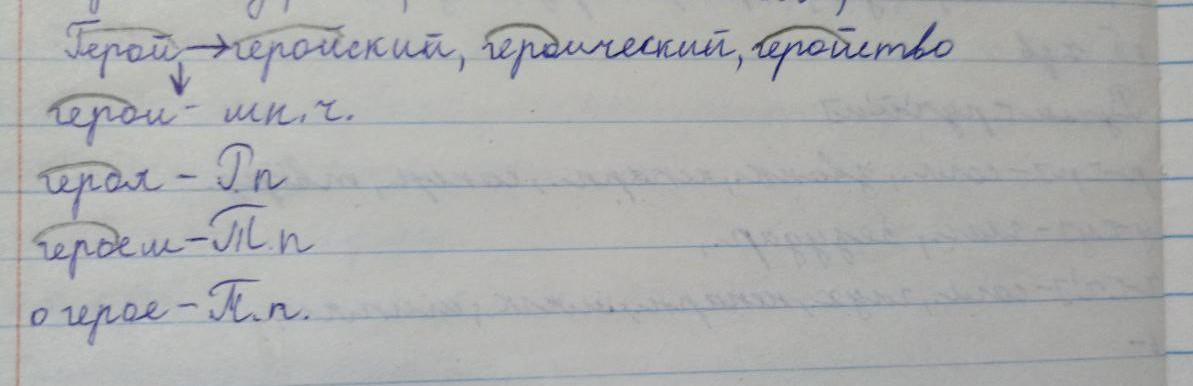 Герой → геройский, героический, геройство
↓
герои - мн. ч.
героя - Р.п
героем - Т.п
о герое - П.п.